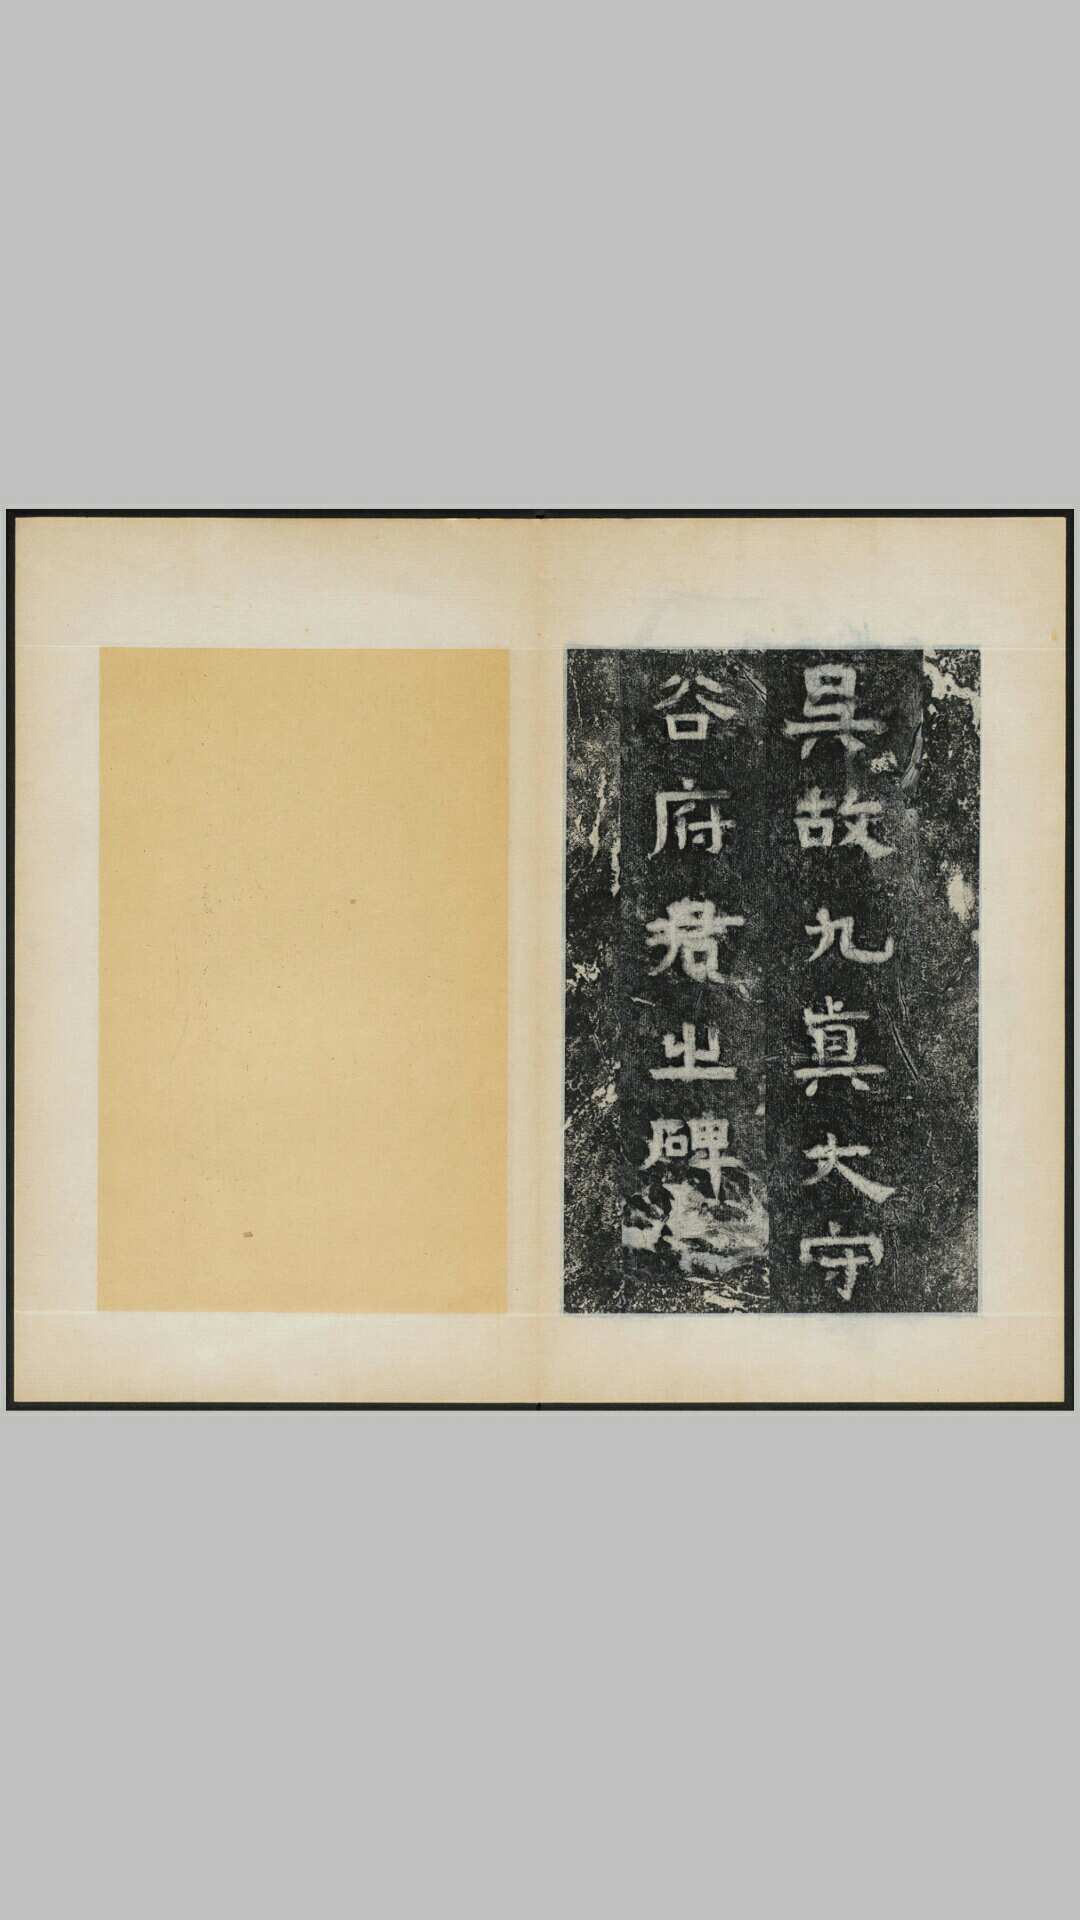 吴故九真大守
谷府君之碑